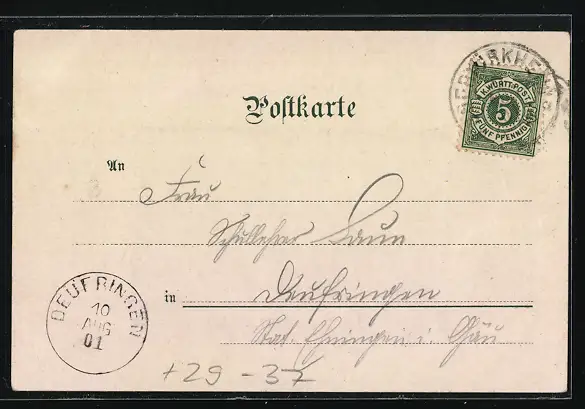 Postkarte
K. WÜRTT. POST
5
FÜNF PFENNIG
An
Frau
Schullehrer Laun
in Deufringen
Stat. Ehningen i. Gäu
DEUFRINGEN
10
AUG
01
+29 -37